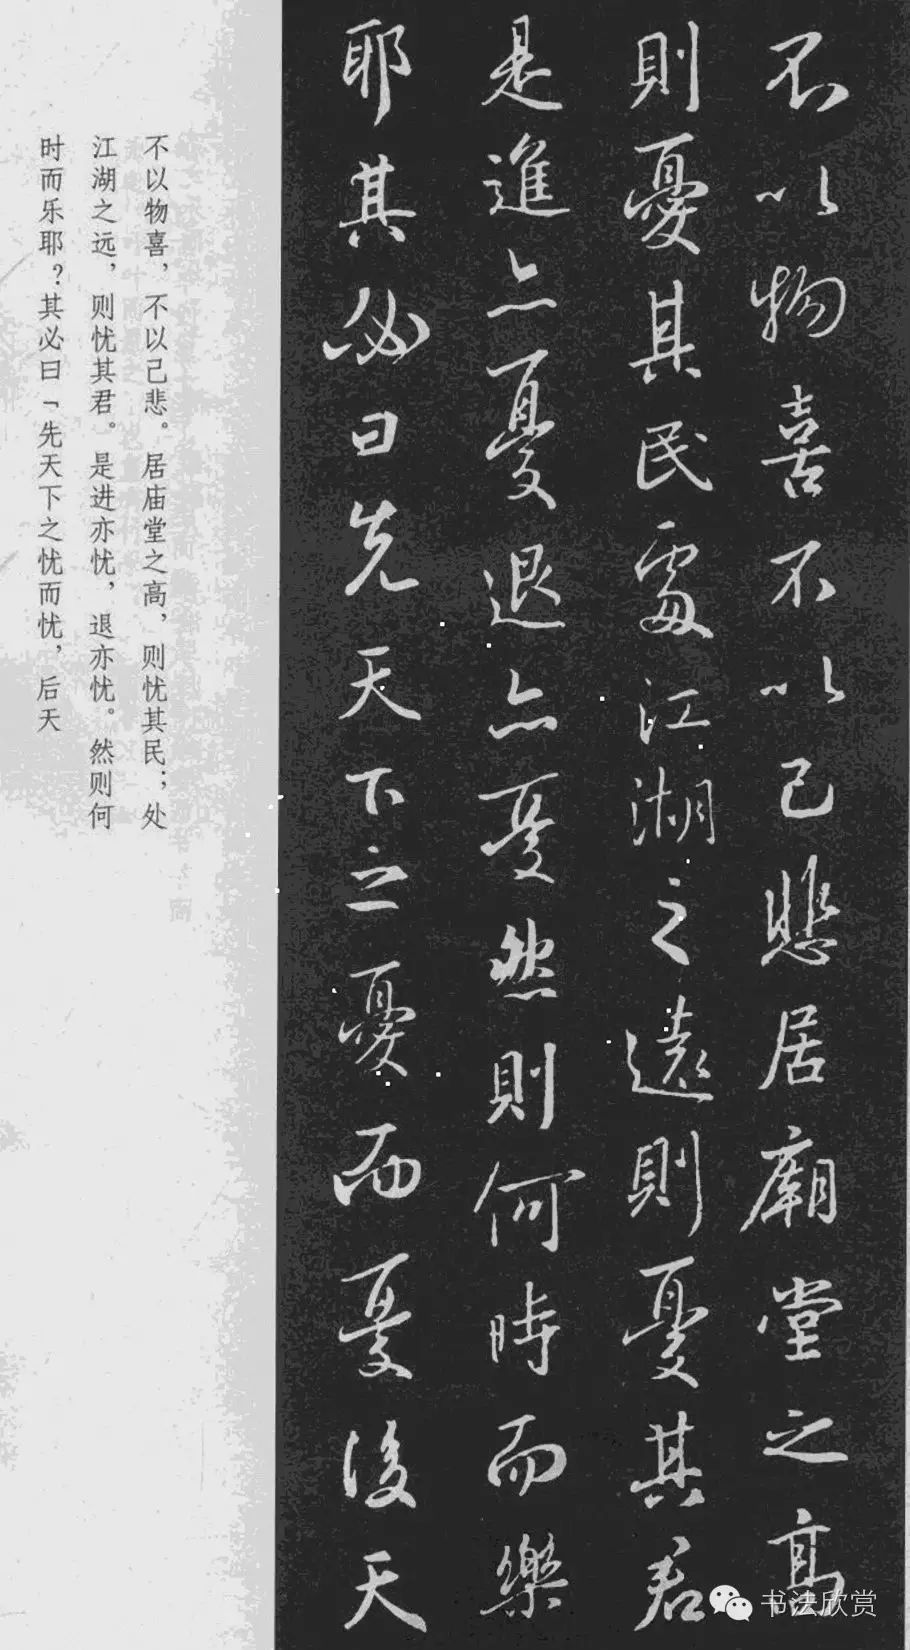 不以物喜不以己悲居廟堂之高
則憂其民處江湖之遠則憂其君
是進亦憂退亦憂然則何時而樂
耶其必曰先天下之憂而憂後天
不以物喜，不以己悲。居庙堂之高，则忧其民；处
江湖之远，则忧其君。是进亦忧，退亦忧。然则何
时而乐耶？其必曰「先天下之忧而忧，后天
书法欣赏